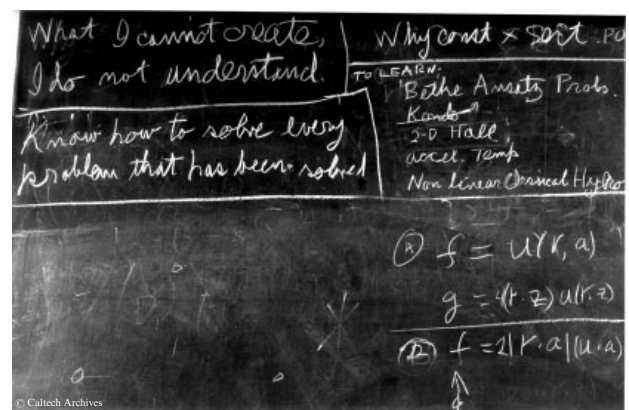 What I cannot create,
I do not understand.
Know how to solve every
problem that has been solved
Why const × sort . PO
TO LEARN.
Bethe Ansatz Probs.
Kondo
2-D Hall
accel. Temp
Non Linear Classical Hydro
Ⓐ f = U(r, a)
g = 4(r·z) u(r.z)
Ⓑ f = 2|r·a|(u·a)
© Caltech Archives